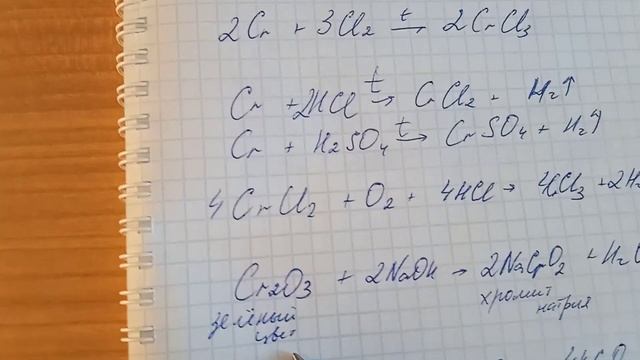 2Cr + 3Cl2 t→ 2CrCl3
Cr + 2HCl t→ CrCl2 + H2↑
Cr + H2SO4 t→ CrSO4 + H2↑
4CrCl2 + O2 + 4HCl → 4CrCl3 + 2H2
Cr2O3 + 2NaOH → 2NaCrO2 + H2O
зелёный
цвет
хромит
натрия